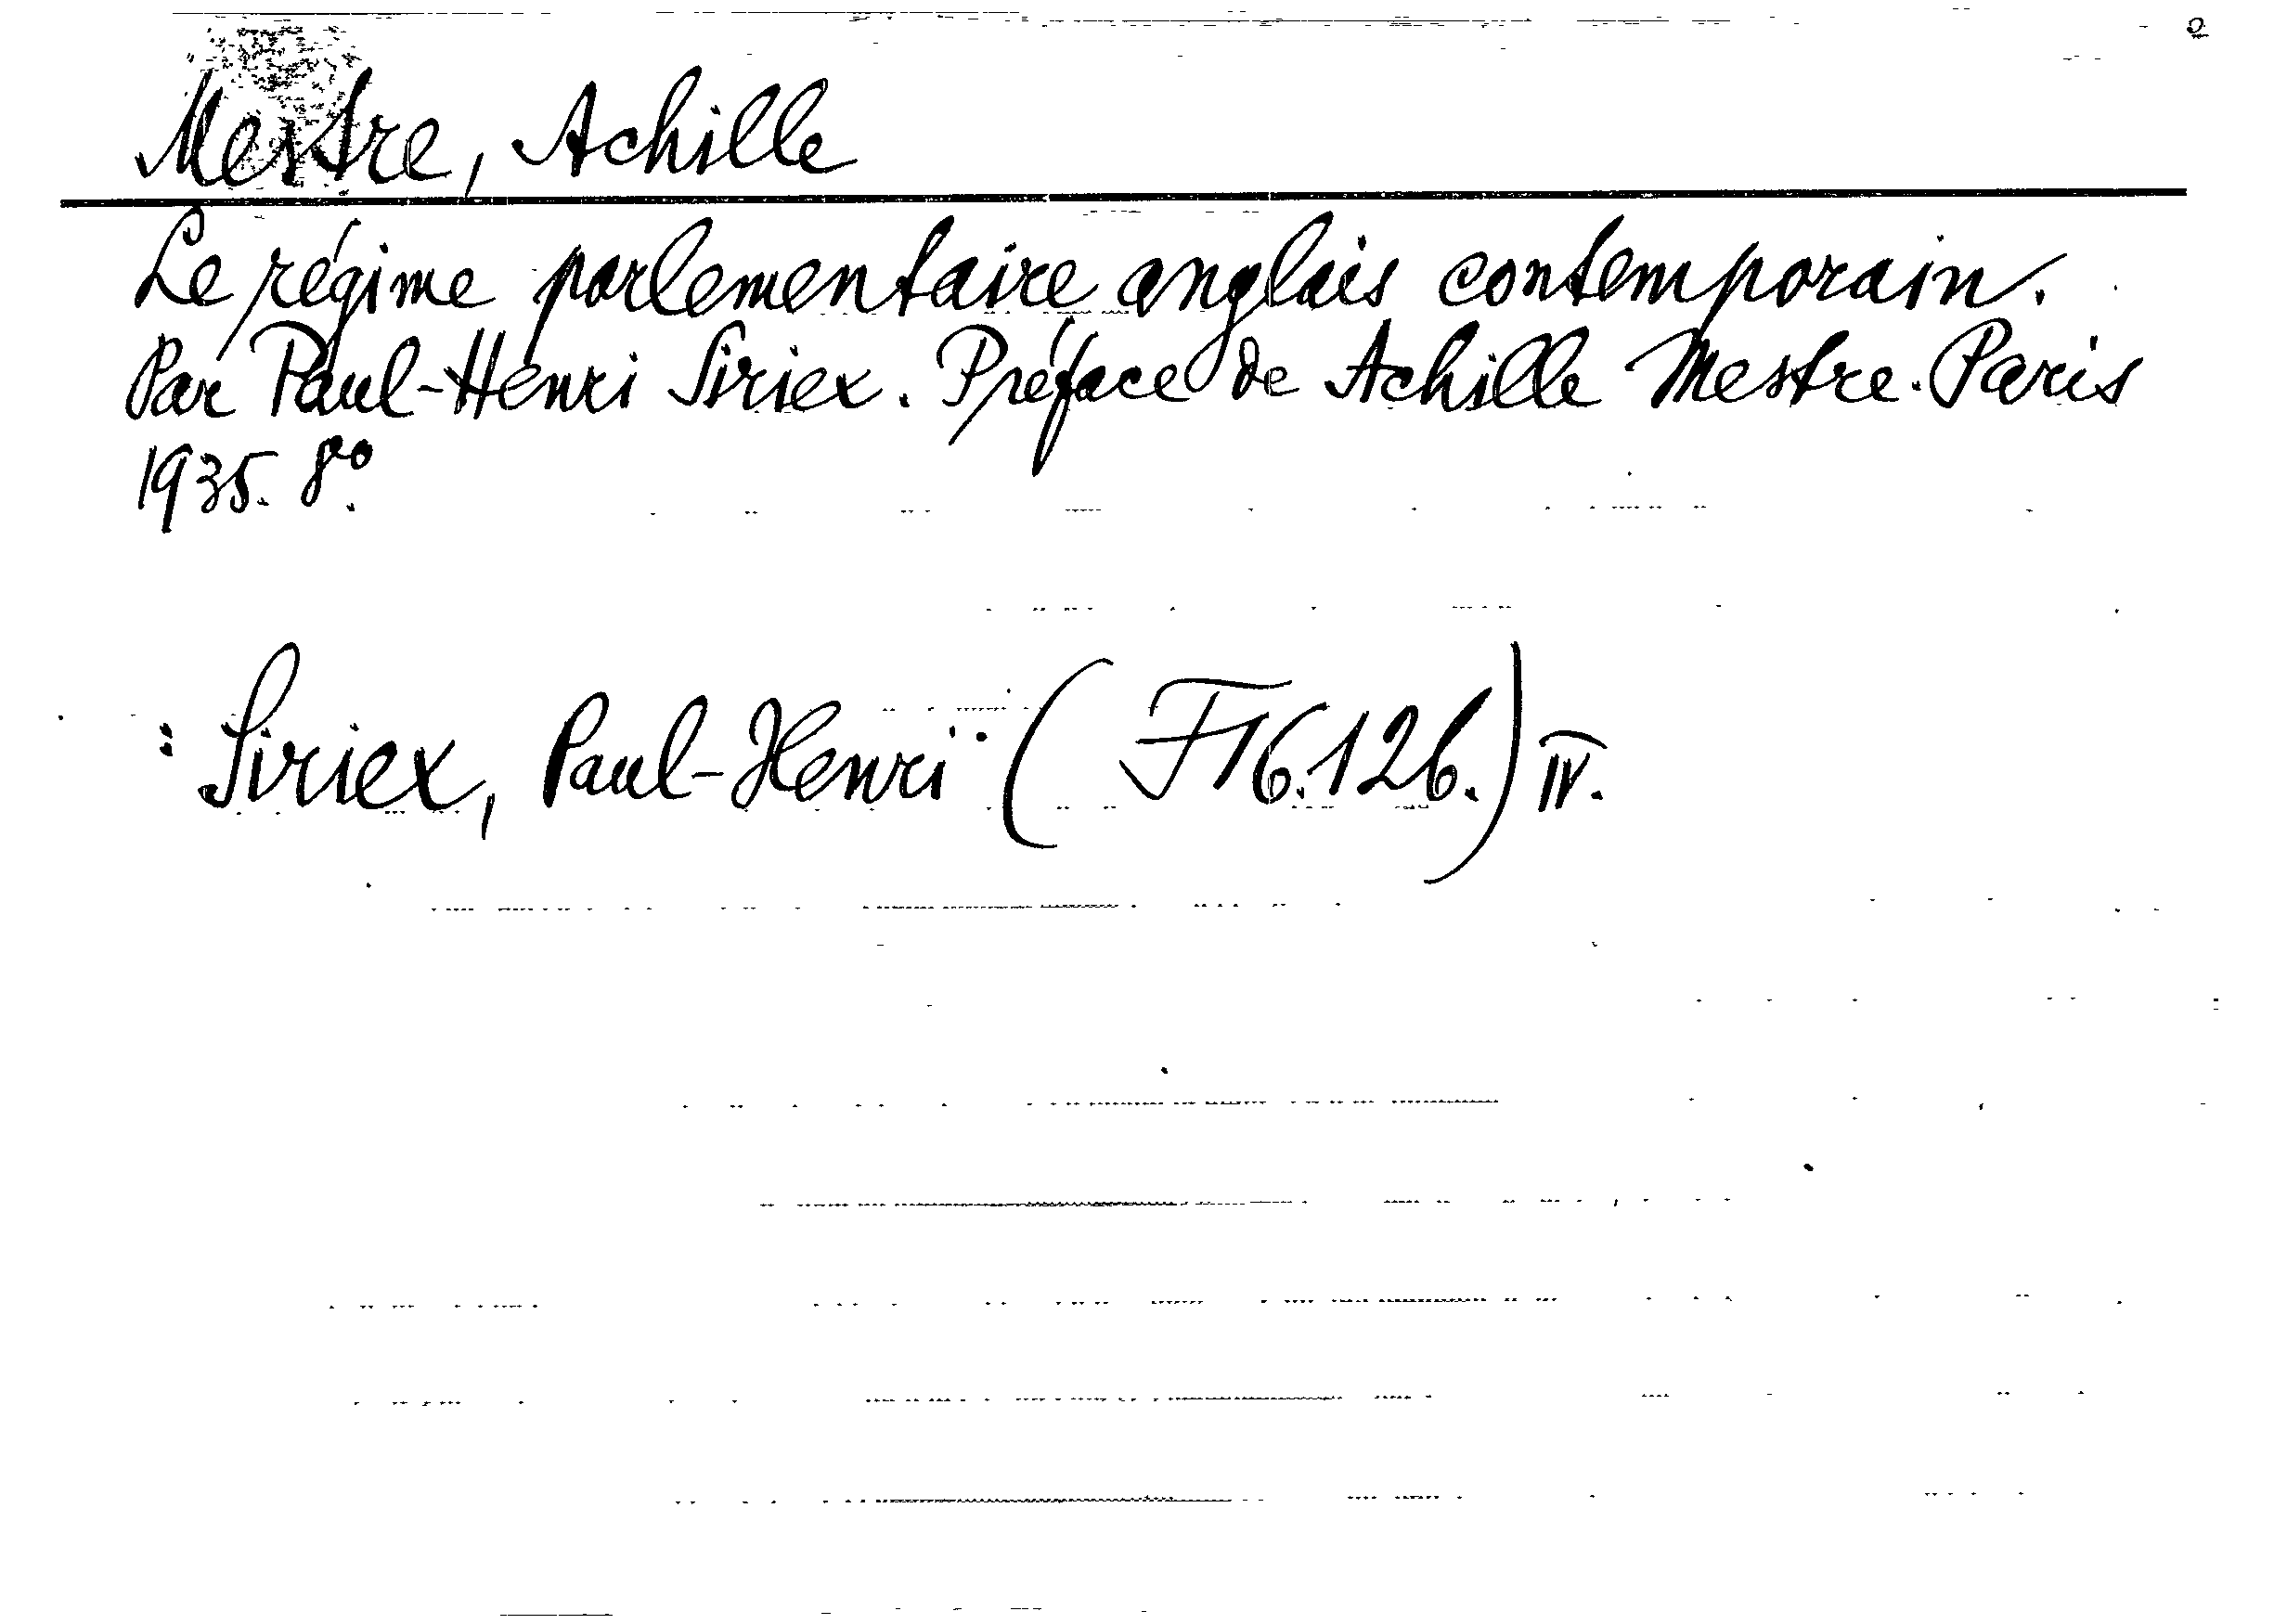 Mestre, Achille
Le régime parlementaire anglais contemporain.
Par Paul-Henri Siriex. Préface de Achille Mestre. Paris
1935. 8º.
: Siriex, Paul-Henri (F16.126.) IV.